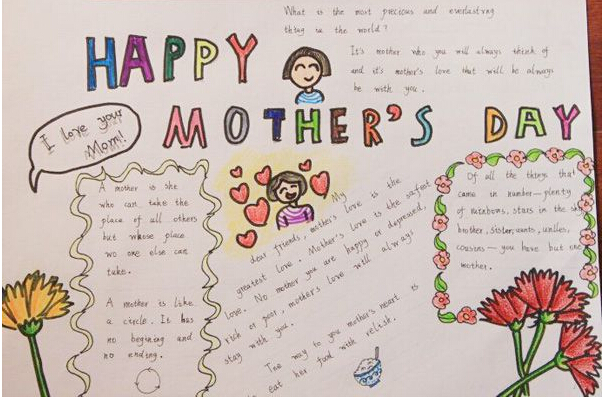 What is the most precious and everlastng
thing in the world?
It's mother who you will always think of
and it's mother's love that will be always
be with you.
HAPPY
MOTHER'S DAY
I love your
Mom!
A mother is she
who can take the
place of all others
but whose place
wo one else can
take.
A mother is like
a circle. It has
no begining and
no ending.
My
dear friends, mother's love is the
greatest love. Mother's love is the safest
love. No mother you are happy or depressed,
rich or poor, mother's love will always
stay with you.
The way to you mother's heart is
eat her food with relish.
Of all the things that
came in number—plenty
of rainbows, stars in the sky
brother, sister, aunts, uncles,
cousins—you have but one
mother.